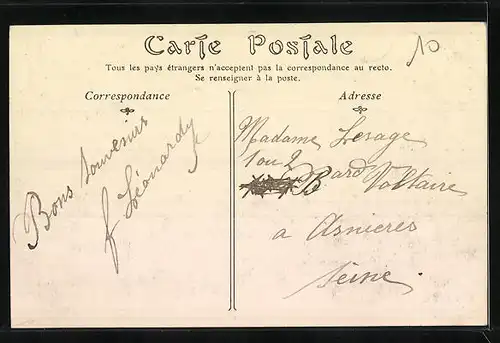 Carte Postale
10
Tous les pays étrangers n'acceptent pas la correspondance au recto.
Se renseigner à la poste.
Correspondance
Bons souvenirs
f Léonardy
Adresse
Madame Lesage
1 ou 2
Bard Voltaire
a Asnieres
Seine